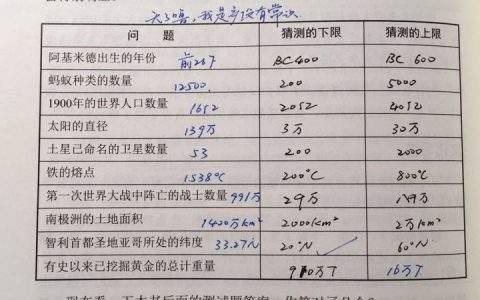 天了噜,我是多没有常识
问 题 猜测的下限 猜测的上限
阿基米德出生的年份 前287 BC400 BC 600
蚂蚁种类的数量 12500 200 5000
1900年的世界人口数量 16亿 20亿 40亿
太阳的直径 139万 3万 30万
土星已命名的卫星数量 53 200 2000
铁的熔点 1538℃ 200℃ 800℃
第一次世界大战中阵亡的战士数量 991万 29万
南极洲的土地面积 1400万km² 2000km² 2万km²
智利首都圣地亚哥所处的纬度 33.27 20°N 60°N
有史以来已挖掘黄金的总计重量 16万T